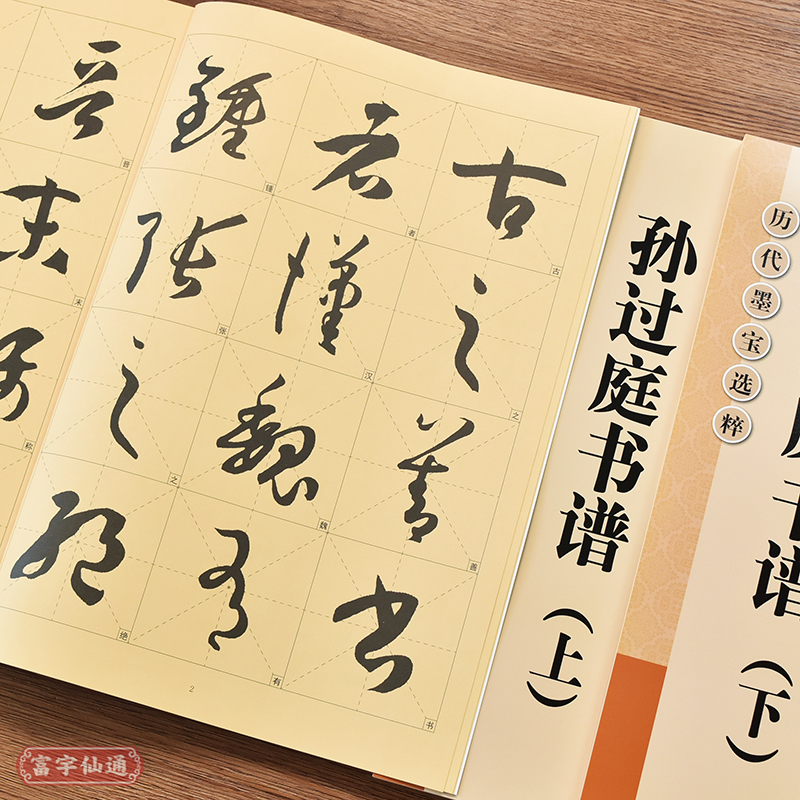 古之善書
古
之
善
书
者漢魏有
者
汉
魏
有
鍾張之絕
锺
张
之
绝
2
晉末稱
晋
末
称
孙过庭书谱(上)
历代墨宝选粹
书谱(下)
富字仙通